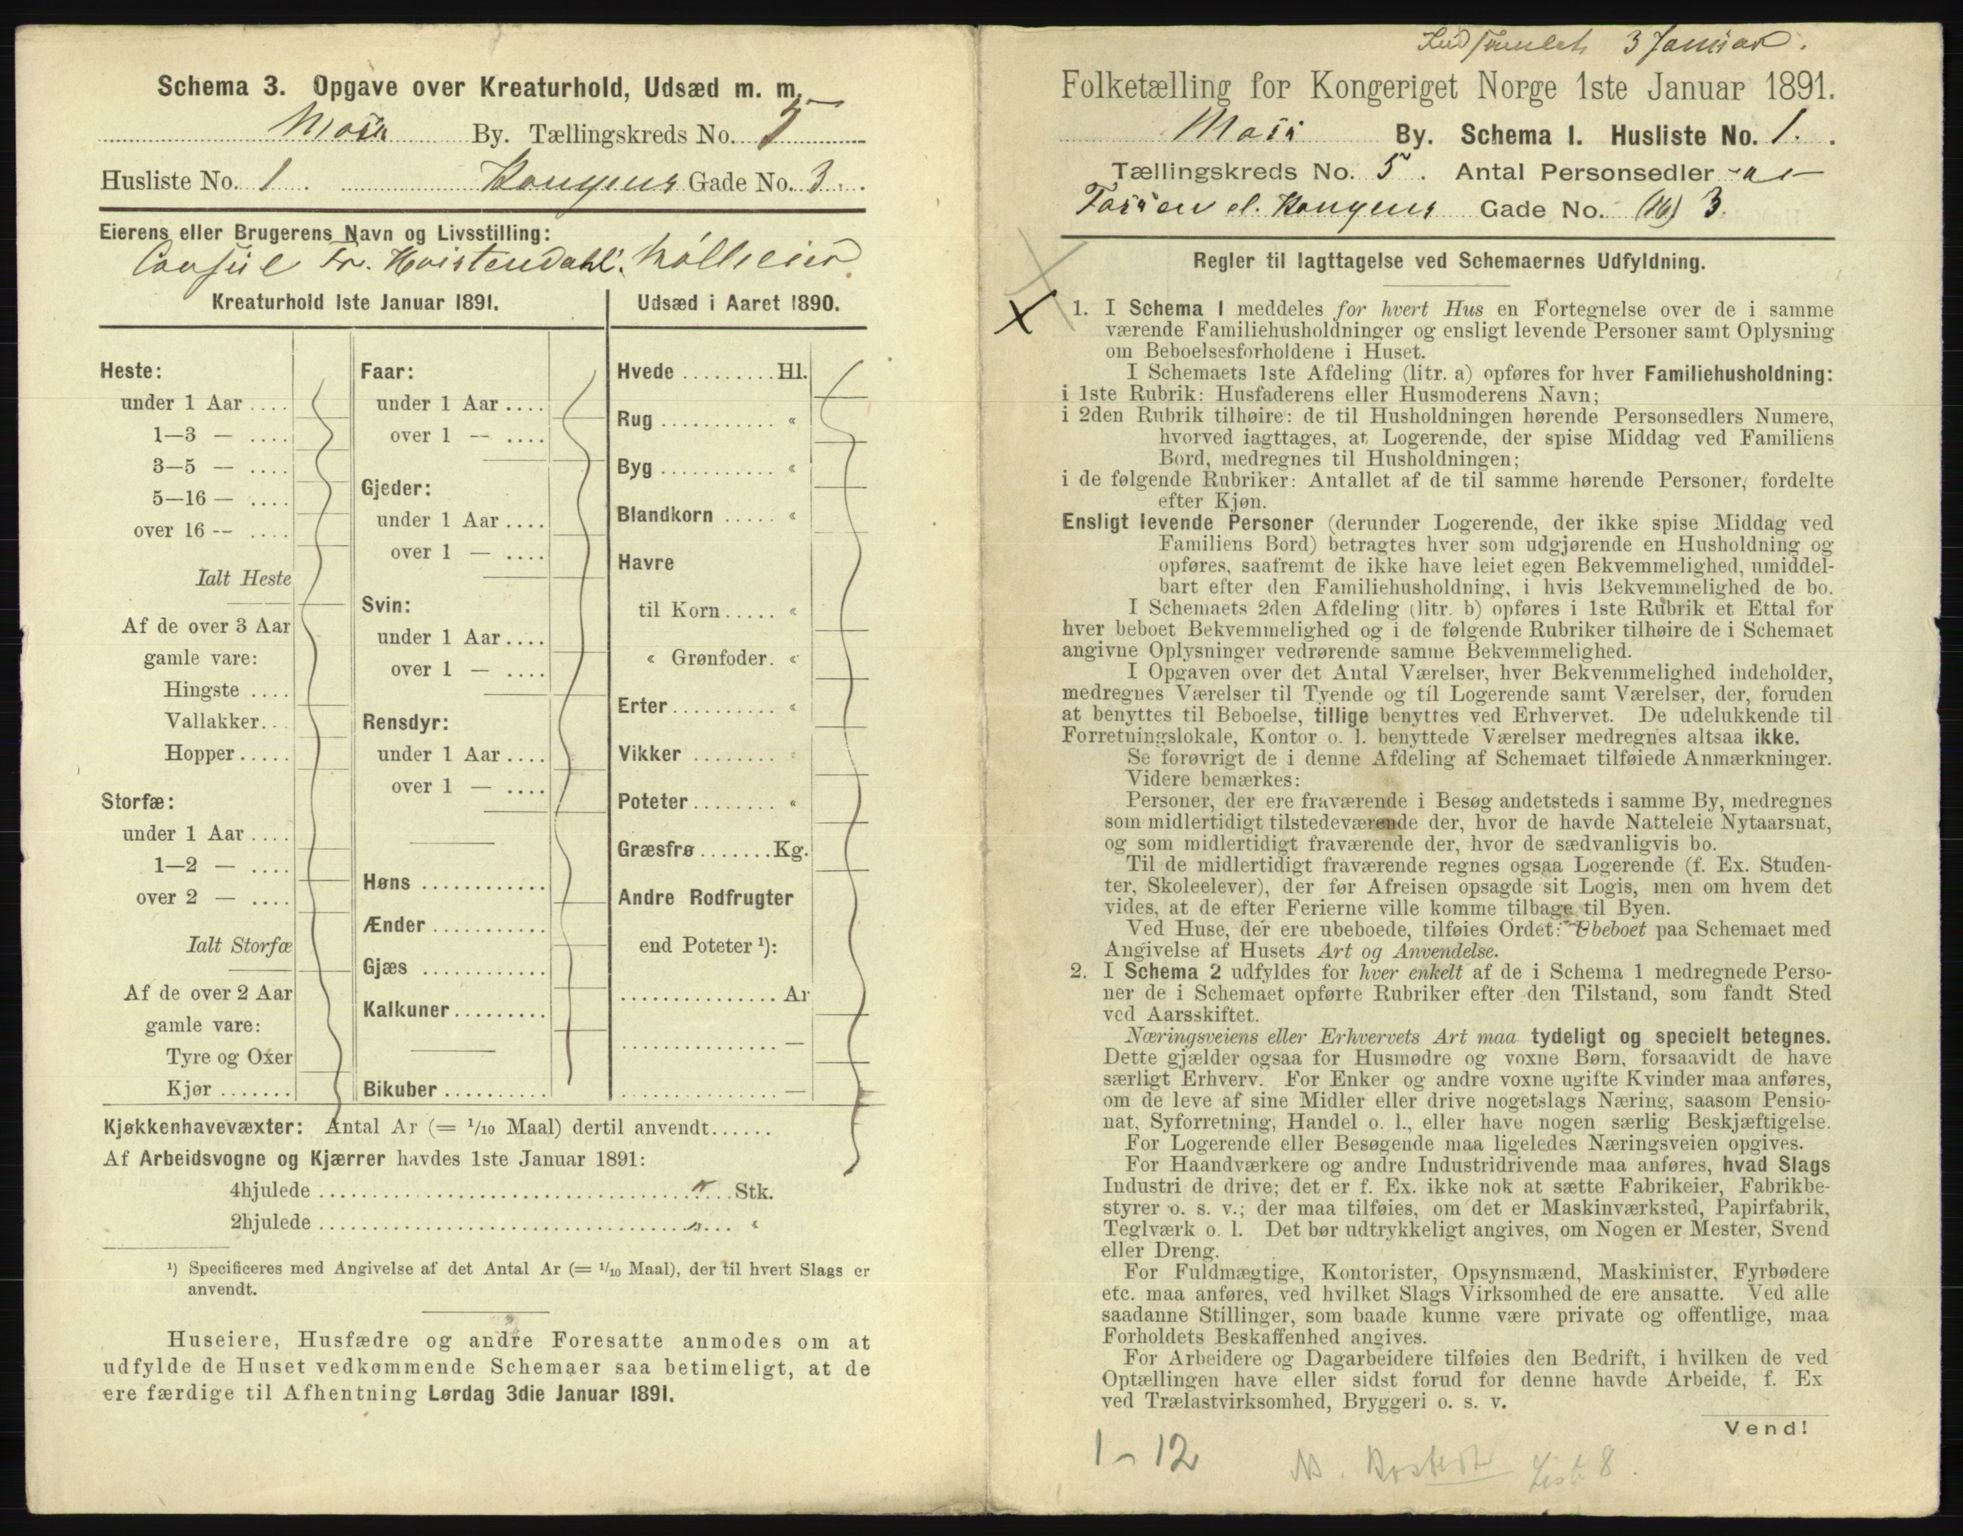 Schema 3. Opgave over Kreaturhold, Udsæd m. m.
Moss By. Tællingskreds No. 5
Husliste No. 1. Kongens Gade No. 3.
Eierens eller Brugerens Navn og Livsstilling:
Consul Fr. Hvistendahl. Mølleeier
Kreaturhold 1ste Januar 1891.
Heste:
under 1 Aar ....
1—3 — ....
3—5 — ....
5—16 — ....
over 16 -- ....
Ialt Heste
Af de over 3 Aar
gamle vare:
Hingste ....
Vallakker...
Hopper.....
Storfæ:
under 1 Aar ....
1—2 — ....
over 2 — ....
Ialt Storfæ
Af de over 2 Aar
gamle vare:
Tyre og Oxer
Kjør .......
Faar:
under 1 Aar ....
over 1 -- ....
Gjeder:
under 1 Aar ....
over 1 — ....
Svin:
under 1 Aar ....
over 1 — ....
Rensdyr:
under 1 Aar ....
over 1 — ....
Høns ............
Ænder ...........
Gjæs ............
Kalkuner.........
Bikuber ..........
Udsæd i Aaret 1890.
Hvede .........Hl.
Rug ........... «
Byg ........... «
Blandkorn ..... «
Havre
til Korn ..... «
« Grønfoder. «
Erter.......... «
Vikker ........ «
Poteter........ «
Græsfrø .......Kg.
Andre Rodfrugter
end Poteter ¹):
............... Ar
............... —
............... —
Kjøkkenhavevæxter: Antal Ar (= 1/10 Maal) dertil anvendt......
Af Arbeidsvogne og Kjærrer havdes 1ste Januar 1891:
4hjulede ........................................ Stk.
2hjulede ........................................ «
¹) Specificeres med Angivelse af det Antal Ar (= 1/10 Maal), der til hvert Slags er
anvendt.
Huseiere, Husfædre og andre Foresatte anmodes om at
udfylde de Huset vedkommende Schemaer saa betimeligt, at de
ere færdige til Afhentning Lørdag 3die Januar 1891.
Indsamlet 3 Januar.
Folketælling for Kongeriget Norge 1ste Januar 1891.
Moss By. Schema I. Husliste No. 1.
Tællingskreds No. 5. Antal Personsedler
Fossen el. Kongens Gade No. (16) 3.
Regler til Iagttagelse ved Schemaernes Udfyldning.
1. I Schema 1 meddeles for hvert Hus en Fortegnelse over de i samme
værende Familiehusholdninger og ensligt levende Personer samt Oplysning
om Beboelsesforholdene i Huset.
I Schemaets 1ste Afdeling (litr. a) opføres for hver Familiehusholdning:
i 1ste Rubrik: Husfaderens eller Husmoderens Navn;
i 2den Rubrik tilhøire: de til Husholdningen hørende Personsedlers Numere,
hvorved iagttages, at Logerende, der spise Middag ved Familiens
Bord, medregnes til Husholdningen;
i de følgende Rubriker: Antallet af de til samme hørende Personer, fordelte
efter Kjøn.
Ensligt levende Personer (derunder Logerende, der ikke spise Middag ved
Familiens Bord) betragtes hver som udgjørende en Husholdning og
opføres, saafremt de ikke have leiet egen Bekvemmelighed, umiddel-
bart efter den Familiehusholdning, i hvis Bekvemmelighed de bo.
I Schemaets 2den Afdeling (litr. b) opføres i 1ste Rubrik et Ettal for
hver beboet Bekvemmelighed og i de følgende Rubriker tilhøire de i Schemaet
angivne Oplysninger vedrørende samme Bekvemmelighed.
I Opgaven over det Antal Værelser, hver Bekvemmelighed indeholder,
medregnes Værelser til Tyende og til Logerende samt Værelser, der, foruden
at benyttes til Beboelse, tillige benyttes ved Erhvervet. De udelukkende til
Forretningslokale, Kontor o. l. benyttede Værelser medregnes altsaa ikke.
Se forøvrigt de i denne Afdeling af Schemaet tilføiede Anmærkninger.
Videre bemærkes:
Personer, der ere fraværende i Besøg andetsteds i samme By, medregnes
som midlertidigt tilstedeværende der, hvor de havde Natteleie Nytaarsnat,
og som midlertidigt fraværende der, hvor de sædvanligvis bo.
Til de midlertidigt fraværende regnes ogsaa Logerende (f. Ex. Studen-
ter, Skoleelever), der før Afreisen opsagde sit Logis, men om hvem det
vides, at de efter Ferierne ville komme tilbage til Byen.
Ved Huse, der ere ubeboede, tilføies Ordet: Ubeboet paa Schemaet med
Angivelse af Husets Art og Anvendelse.
2. I Schema 2 udfyldes for hver enkelt af de i Schema 1 medregnede Perso-
ner de i Schemaet opførte Rubriker efter den Tilstand, som fandt Sted
ved Aarsskiftet.
Næringsveiens eller Erhvervets Art maa tydeligt og specielt betegnes.
Dette gjælder ogsaa for Husmødre og voxne Børn, forsaavidt de have
særligt Erhverv. For Enker og andre voxne ugifte Kvinder maa anføres,
om de leve af sine Midler eller drive nogetslags Næring, saasom Pensio-
nat, Syforretning, Handel o. l., eller have nogen særlig Beskjæftigelse.
For Logerende eller Besøgende maa ligeledes Næringsveien opgives.
For Haandværkere og andre Industridrivende maa anføres, hvad Slags
Industri de drive; det er f. Ex. ikke nok at sætte Fabrikeier, Fabrikbe-
styrer o. s. v.; der maa tilføies, om det er Maskinværksted, Papirfabrik,
Teglværk o. l. Det bør udtrykkeligt angives, om Nogen er Mester, Svend
eller Dreng.
For Fuldmægtige, Kontorister, Opsynsmænd, Maskinister, Fyrbødere
etc. maa anføres, ved hvilket Slags Virksomhed de ere ansatte. Ved alle
saadanne Stillinger, som baade kunne være private og offentlige, maa
Forholdets Beskaffenhed angives.
For Arbeidere og Dagarbeidere tilføies den Bedrift, i hvilken de ved
Optællingen have eller sidst forud for denne havde Arbeide, f. Ex
ved Trælastvirksomhed, Bryggeri o. s. v.
Vend!
1-12
List 8.